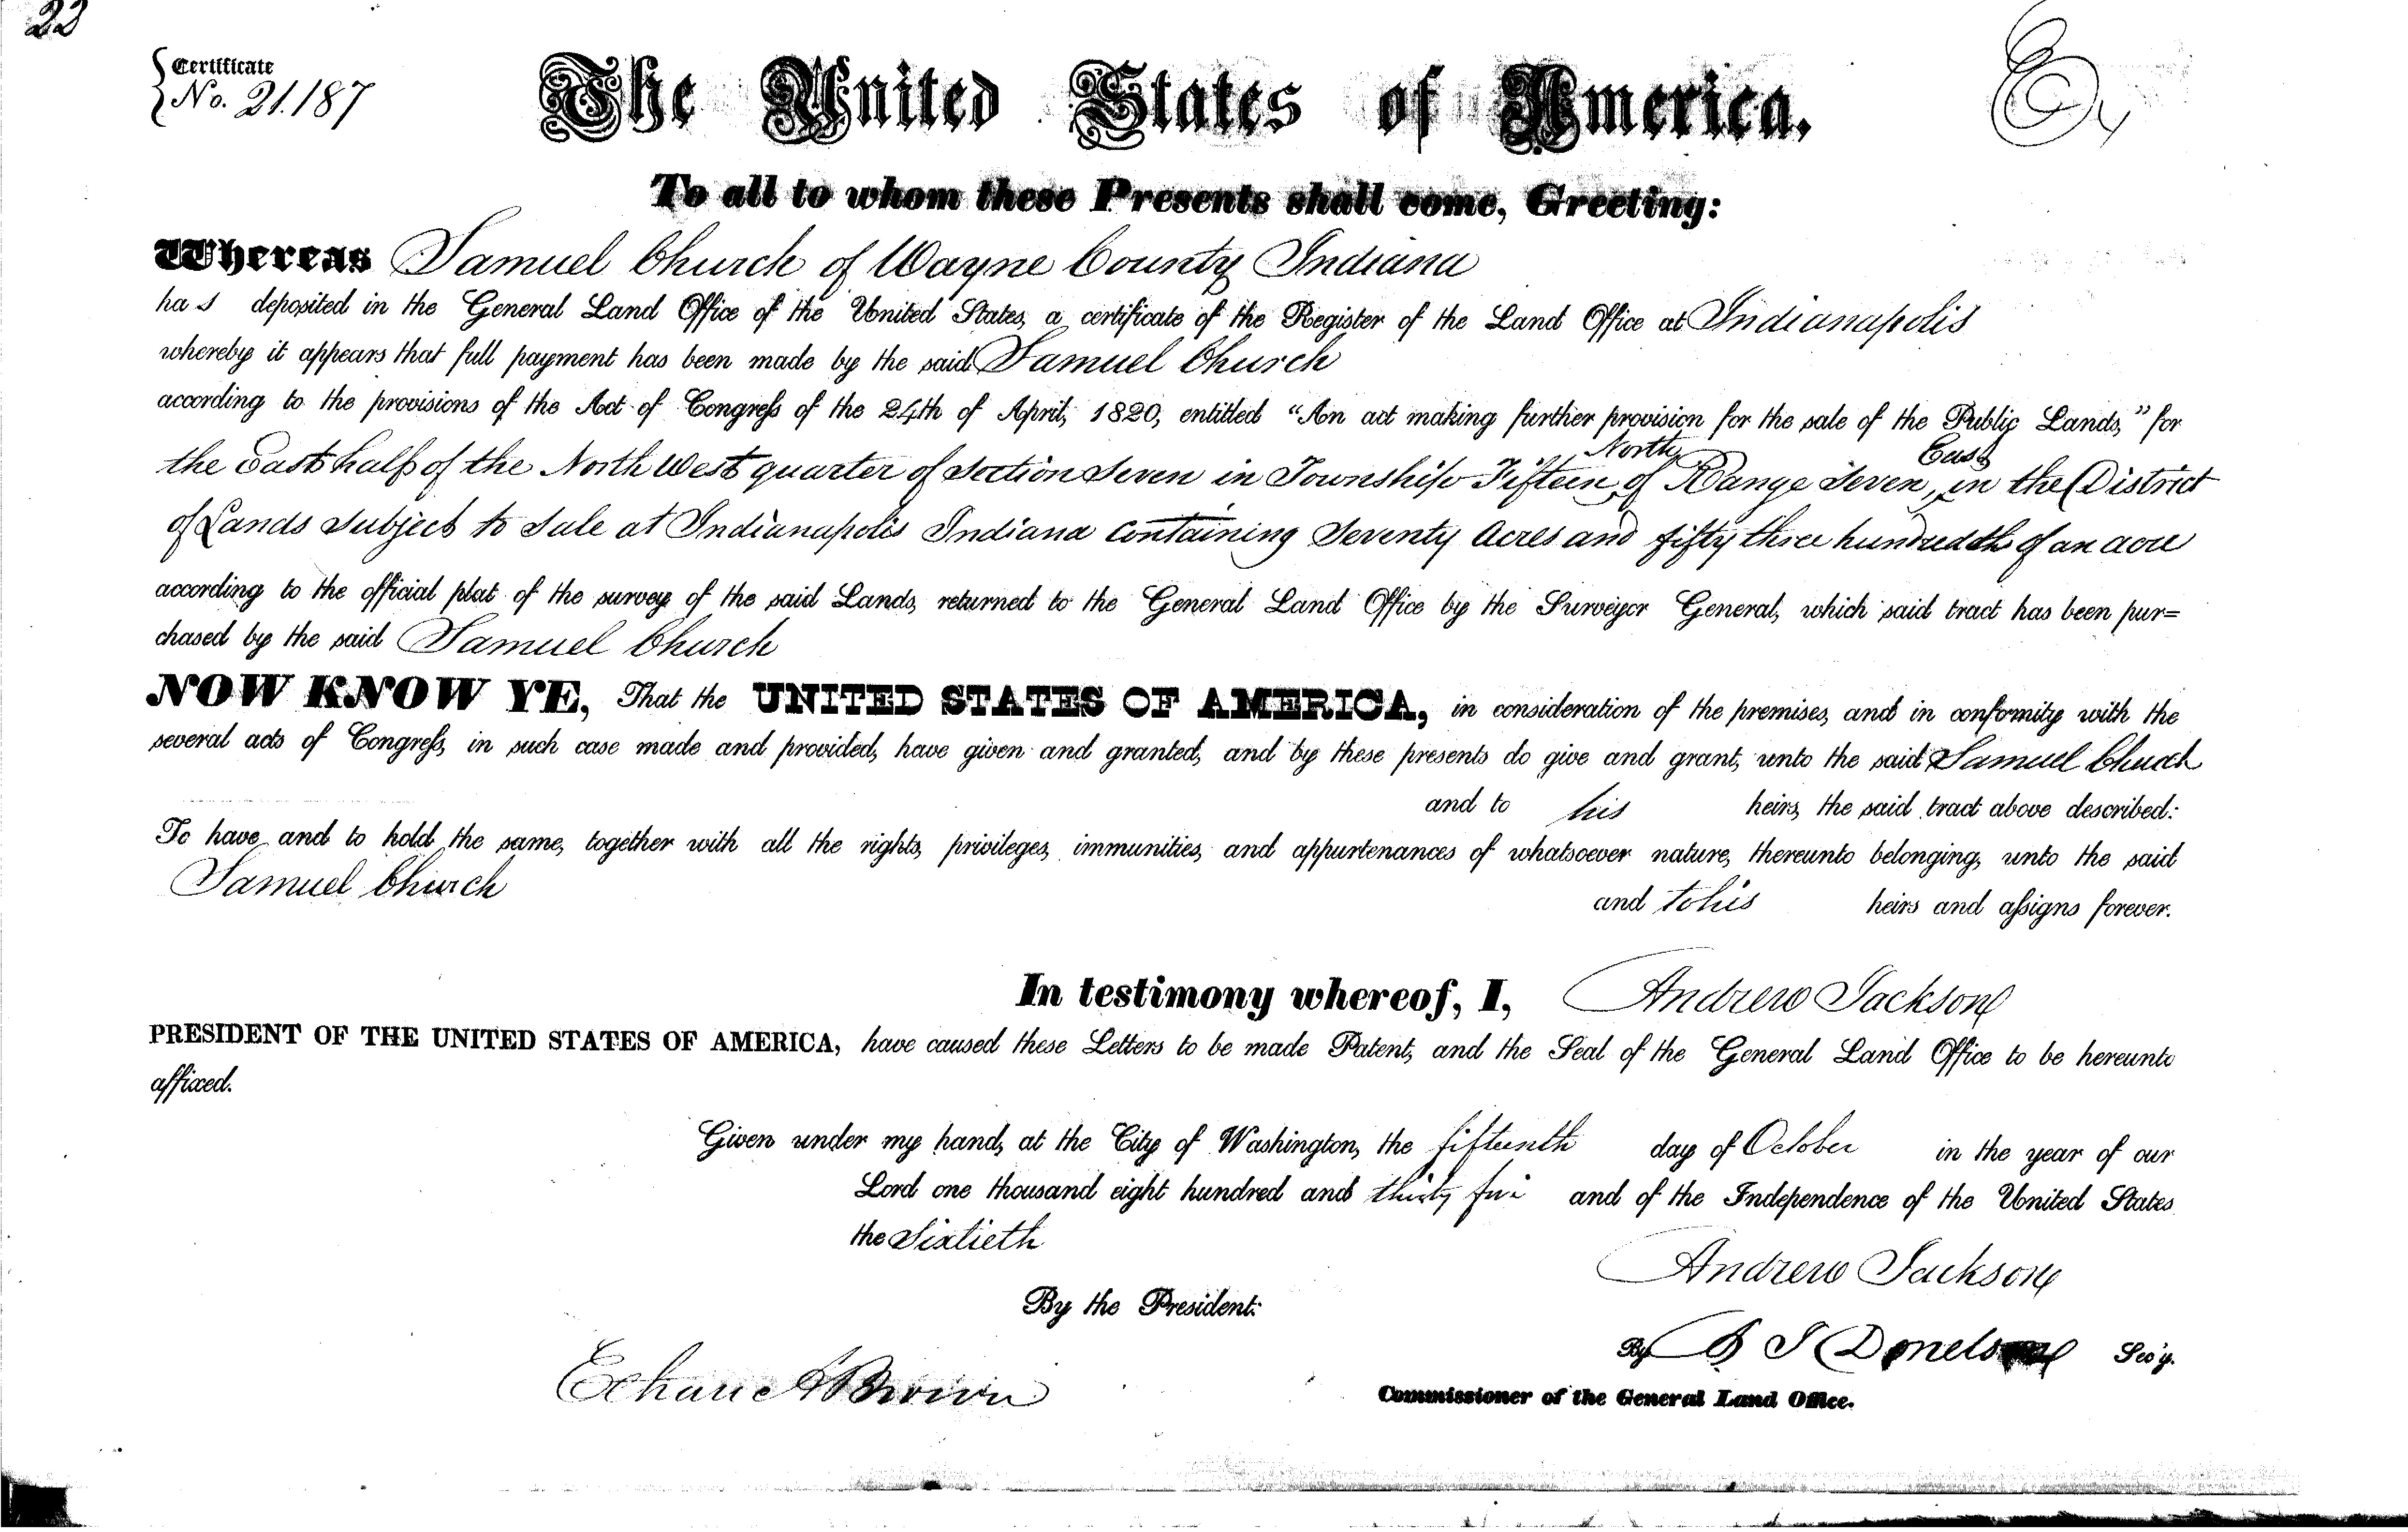 22
Certificate
No. 21.187
The United States of America,
To all to whom these Presents shall come, Greeting:
Whereas Samuel Church of Wayne County Indiana
has deposited in the General Land Office of the United States, a certificate of the Register of the Land Office at Indianapolis
whereby it appears that full payment has been made by the said Samuel Church
according to the provisions of the Act of Congress of the 24th of April, 1820, entitled "An act making further provision for the sale of the Public Lands," for
North East
the East half of the North West quarter of Section Seven in Township Fifteen, of Range Seven, in the District
of Lands Subject to Sale at Indianapolis Indiana containing Seventy Acres and fifty three hundredths of an acre
according to the official plat of the survey of the said Lands, returned to the General Land Office by the Surveyor General, which said tract has been pur=
chased by the said Samuel Church
NOW KNOW YE, That the UNITED STATES OF AMERICA, in consideration of the premises, and in conformity with the
several acts of Congress, in such case made and provided, have given and granted, and by these presents do give and grant, unto the said Samuel Church
and to his heirs, the said tract above described:
To have and to hold the same, together with all the rights, privileges, immunities, and appurtenances of whatsoever nature, thereunto belonging, unto the said
Samuel Church and to his heirs and assigns forever.
In testimony whereof, I, Andrew Jackson
PRESIDENT OF THE UNITED STATES OF AMERICA, have caused these Letters to be made Patent, and the Seal of the General Land Office to be hereunto
affixed.
Given under my hand, at the City of Washington, the fifteenth day of October in the year of our
Lord one thousand eight hundred and thirty five and of the Independence of the United States
the Sixtieth
Andrew Jackson
By the President:
By A J Donelson Sec'y.
A Brown
Commissioner of the General Land Office.